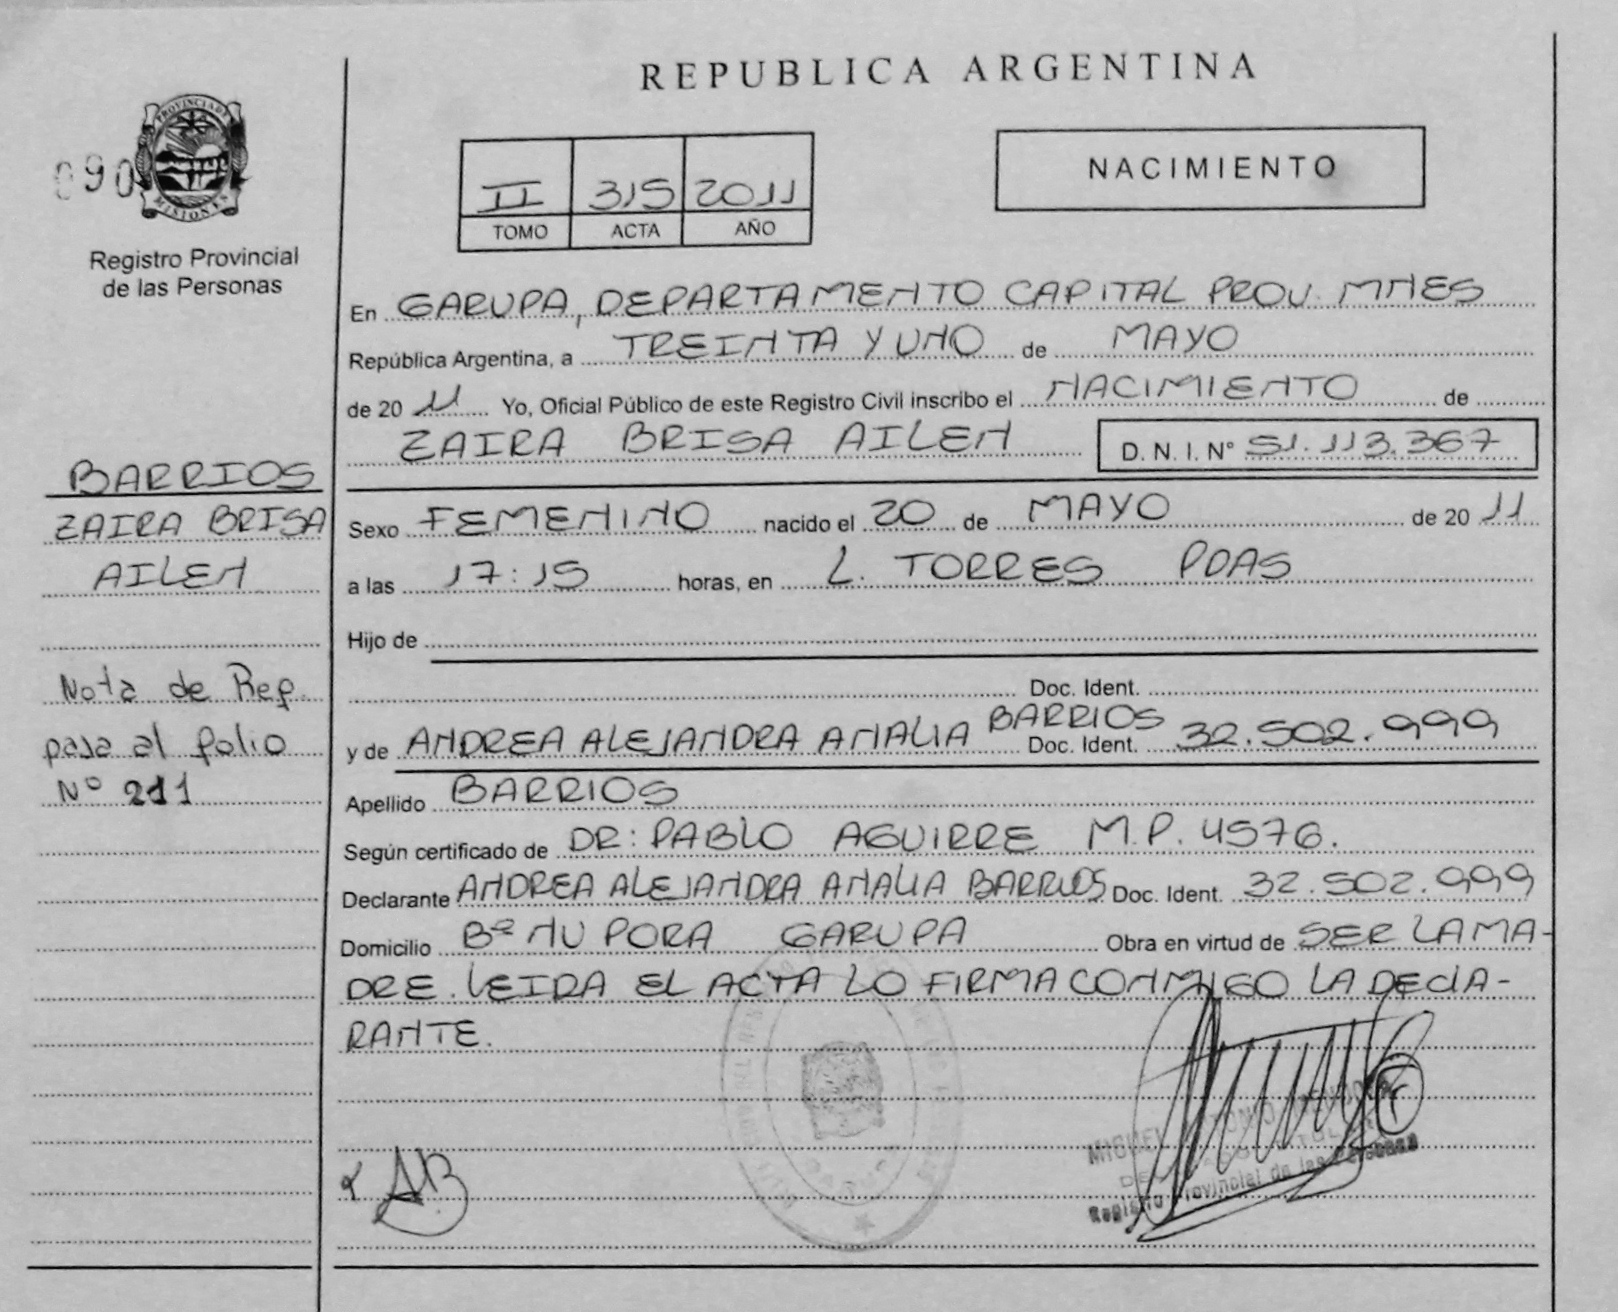 REPUBLICA ARGENTINA
PROVINCIA DE
MISIONES
090
Registro Provincial
de las Personas
II 315 2011
TOMO ACTA AÑO
NACIMIENTO
En GARUPA, DEPARTAMENTO CAPITAL PROV. MNES
República Argentina, a TREINTA Y UNO de MAYO
de 20 11 Yo, Oficial Público de este Registro Civil inscribo el NACIMIENTO de
ZAIRA BRISA AILEN D. N. I. N° 51.113.367
BARRIOS
ZAIRA BRISA
AILEN
Nota de Ref.
pasa al folio
N° 211
Sexo FEMENINO nacido el 20 de MAYO de 20 11
a las 17:15 horas, en L. TORRES PDAS
Hijo de
Doc. Ident.
y de ANDREA ALEJANDRA ANALIA BARRIOS Doc. Ident. 32.502.999
Apellido BARRIOS
Según certificado de DR: PABLO AGUIRRE M.P. 4576.
Declarante ANDREA ALEJANDRA ANALIA BARRIOS Doc. Ident. 32.502.999
Domicilio Bº ÑU PORA GARUPA Obra en virtud de SER LA MA-
DRE. LEIDA EL ACTA LO FIRMA CONMIGO LA DECLA-
RANTE.
AB
MIGUEL
Registro Provincial de las Personas